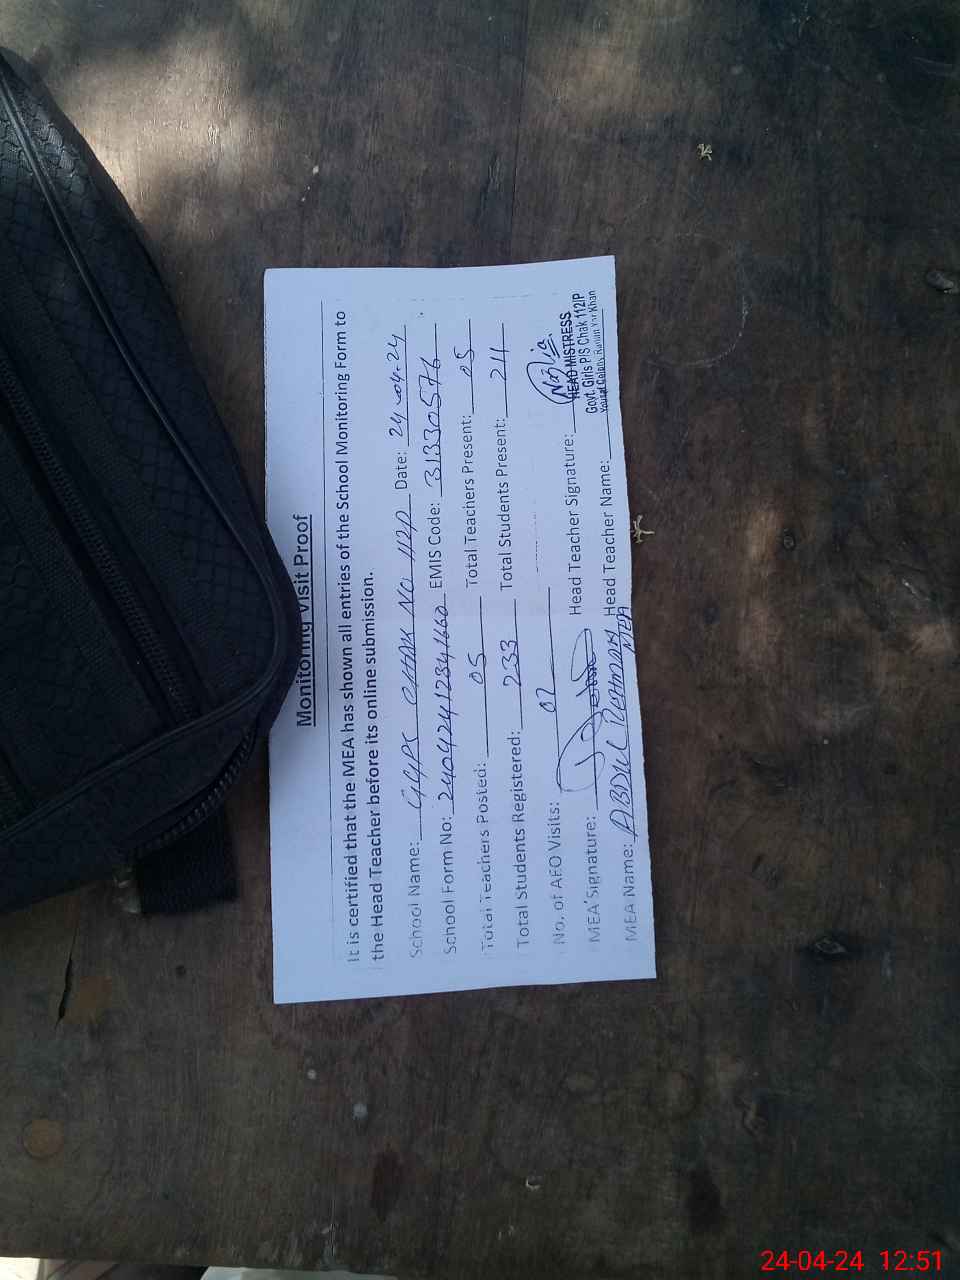 Monitoring Visit Proof
It is certified that the MEA has shown all entries of the School Monitoring Form to
the Head Teacher before its online submission.
School Name: GGPS CHAK NO 112P Date: 24-04-24
School Form No: EMIS Code: 31330576
Total Teachers Posted: 05 Total Teachers Present: 05
Total Students Registered: 233 Total Students Present: 211
No. of AEO Visits: 02
MEA Signature: Head Teacher Signature: Nazia
HEAD MISTRESS
Govt. Girls P/S Chak 112/P
MEA Name: ABDUL REHMAN Head Teacher Name:
MEA
24-04-24 12:51